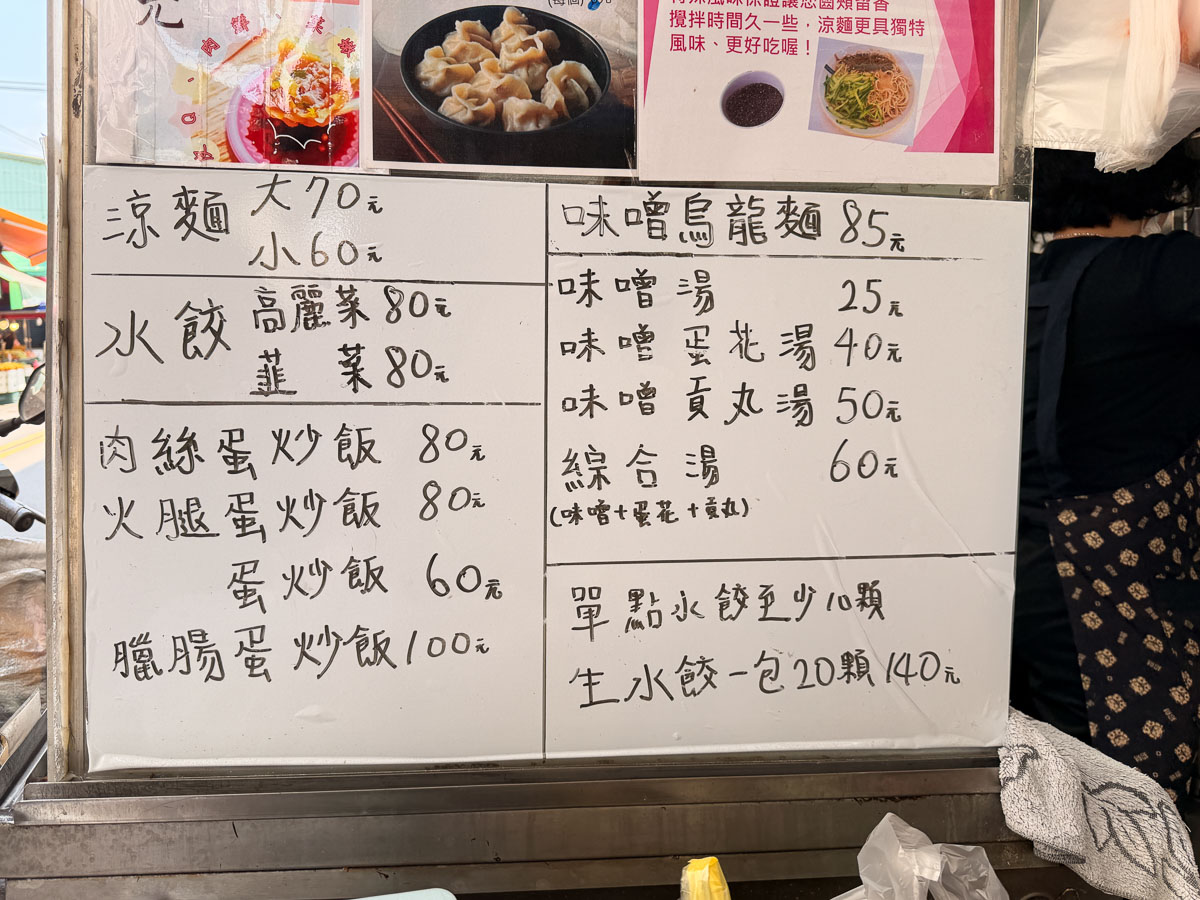 元
(每個)
特殊風味保證讓您齒頰留香
攪拌時間久一些，涼麵更具獨特
風味、更好吃喔！
涼麵 大70元
小60元
水餃 高麗菜80元
韮菜80元
肉絲蛋炒飯 80元
火腿蛋炒飯 80元
蛋炒飯 60元
臘腸蛋炒飯100元
味噌烏龍麵85元
味噌湯 25元
味噌蛋花湯40元
味噌貢丸湯50元
綜合湯 60元
(味噌+蛋花+貢丸)
單點水餃至少10顆
生水餃一包20顆140元